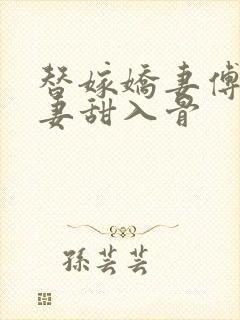 替嫁嬌妻傅
妻甜入骨
孫芸芸